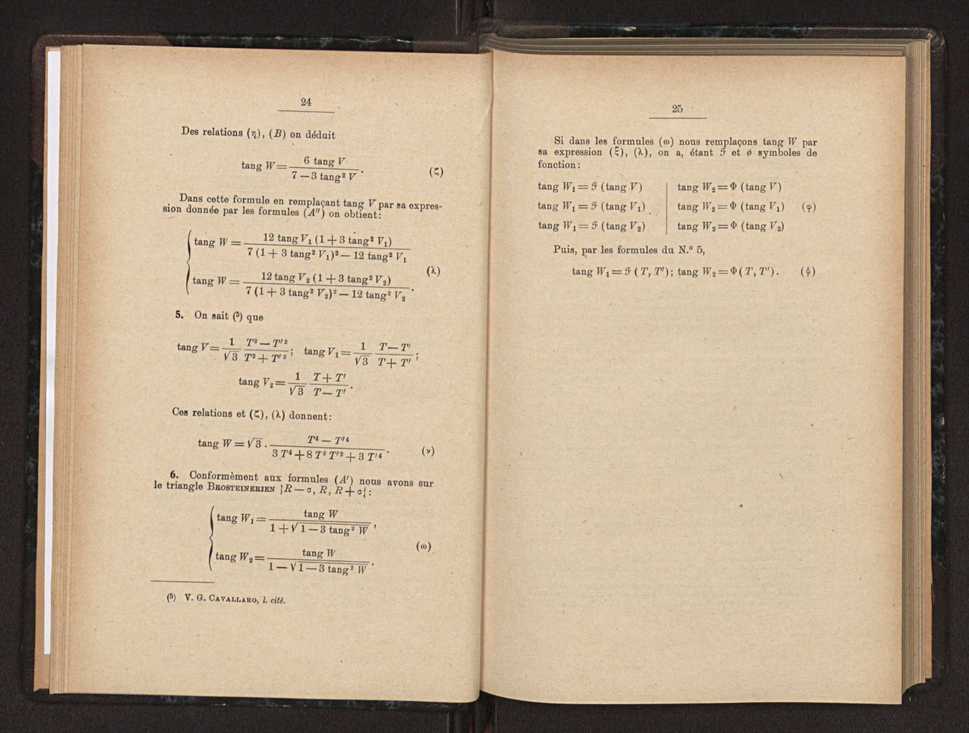 24
Des relations (η), (B) on déduit
tang W = 6 tang V / 7 — 3 tang² V . (ζ)
Dans cette formule en remplaçant tang V par sa expres-
sion donnée par les formules (A'') on obtient:
tang W = 12 tang V₁ (1 + 3 tang² V₁) / 7 (1 + 3 tang² V₁)² — 12 tang² V₁
(λ)
tang W = 12 tang V₂ (1 + 3 tang² V₂) / 7 (1 + 3 tang² V₂)² — 12 tang² V₂ .
5. On sait (⁵) que
tang V = 1/√3 T² — T'² / T² + T'² ; tang V₁ = 1/√3 T — T' / T + T' ;
tang V₂ = 1/√3 T + T' / T — T' .
Ces relations et (ζ), (λ) donnent:
tang W = √3 . T⁴ — T'⁴ / 3 T⁴ + 8 T² T'² + 3 T'⁴ . (ν)
6. Conformèment aux formules (A') nous avons sur
le triangle BROSTEINERIEN {R — σ, R, R + σ}:
tang W₁ = tang W / 1 + √1 — 3 tang² W ,
(ω)
tang W₂ = tang W / 1 — √1 — 3 tang² W .
(⁵) V. G. CAVALLARO, l. cité.
25
Si dans les formules (ω) nous remplaçons tang W par
sa expression (ξ), (λ), on a, étant ℱ et ø symboles de
fonction:
tang W₁ = ℱ (tang V) tang W₂ = Φ (tang V)
tang W₁ = ℱ (tang V₁) tang W₂ = Φ (tang V₁) (φ)
tang W₁ = ℱ (tang V₂) tang W₂ = Φ (tang V₂)
Puis, par les formules du N.º 5,
tang W₁ = ℱ (T, T'); tang W₂ = Φ (T, T'). (ψ)